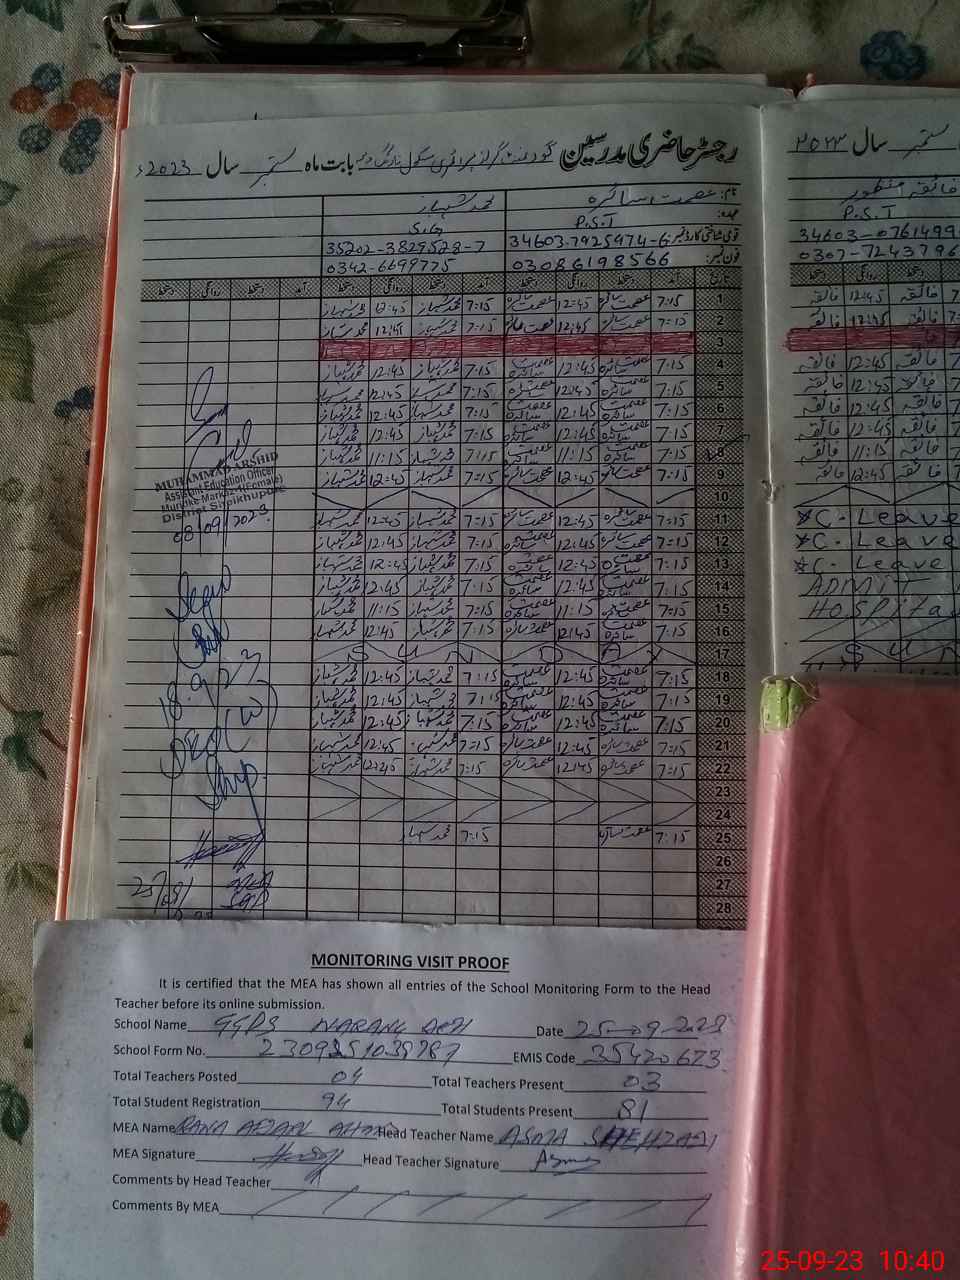 رجسٹر حاضری مدرسین گورنمنٹ گرلز پرائمری سکول نارنگ بابت ماہ ستمبر سال 2023ء
نام: عصمت سائرہ محمد شہباز
عہدہ: P.S.T
قومی شناختی کارڈ نمبر: 34603-7925974-6 35202-3829528-7
فون نمبر: 03086198566 0342-6699775
تاریخ آمد دستخط روانگی دستخط آمد دستخط روانگی دستخط آمد دستخط روانگی دستخط
1 7:15 عصمت سائرہ 12:45 عصمت سائرہ 7:15 محمد شہباز 12:45 محمد شہباز
2 7:15 عصمت سائرہ 12:45 عصمت سائرہ 7:15 محمد شہباز 12:45 محمد شہباز
3
4 7:15 عصمت سائرہ 12:45 عصمت سائرہ 7:15 محمد شہباز 12:45 محمد شہباز
5 7:15 عصمت سائرہ 12:45 عصمت سائرہ 7:15 محمد شہباز 12:45 محمد شہباز
6 7:15 عصمت سائرہ 12:45 عصمت سائرہ 7:15 محمد شہباز 12:45 محمد شہباز
7 7:15 عصمت سائرہ 12:45 عصمت سائرہ 7:15 محمد شہباز 12:45 محمد شہباز
8 7:15 عصمت سائرہ 11:15 عصمت سائرہ 7:15 محمد شہباز 11:15 محمد شہباز
9 7:15 عصمت سائرہ 12:45 عصمت سائرہ 7:15 محمد شہباز 12:45 محمد شہباز
10
11 7:15 عصمت سائرہ 12:45 عصمت سائرہ 7:15 محمد شہباز 12:45 محمد شہباز
12 7:15 عصمت سائرہ 12:45 عصمت سائرہ 7:15 محمد شہباز 12:45 محمد شہباز
13 7:15 عصمت سائرہ 12:45 عصمت سائرہ 7:15 محمد شہباز 12:45 محمد شہباز
14 7:15 عصمت سائرہ 12:45 عصمت سائرہ 7:15 محمد شہباز 12:45 محمد شہباز
15 7:15 عصمت سائرہ 11:15 عصمت سائرہ 7:15 محمد شہباز 11:15 محمد شہباز
16 7:15 عصمت سائرہ 12:45 عصمت سائرہ 7:15 محمد شہباز 12:45 محمد شہباز
17 S U N D A Y
18 7:15 عصمت سائرہ 12:45 عصمت سائرہ 7:15 محمد شہباز 12:45 محمد شہباز
19 7:15 عصمت سائرہ 12:45 عصمت سائرہ 7:15 محمد شہباز 12:45 محمد شہباز
20 7:15 عصمت سائرہ 12:45 عصمت سائرہ 7:15 محمد شہباز 12:45 محمد شہباز
21 7:15 عصمت سائرہ 12:45 عصمت سائرہ 7:15 محمد شہباز 12:45 محمد شہباز
22 7:15 عصمت سائرہ 12:45 عصمت سائرہ 7:15 محمد شہباز 12:45 محمد شہباز
23
24
25 7:15 عصمت سائرہ 7:15 محمد شہباز
26
27
28
MUHAMMAD ARSHID
Assistant Education Officer
Muridke-Markaz-1(Female)
District Sheikhupura
08/09/2023
18.9.23
ستمبر سال ۲۰۲۳
فائقہ منظور
P.S.T
34603-0761499
0307-7243796
فائقہ 12:45 فائقہ
فائقہ 12:45 فائقہ
فائقہ 12:45 فائقہ
فائقہ 12:45 فائقہ
فائقہ 12:45 فائقہ
فائقہ 12:45 فائقہ
فائقہ 11:15 فائقہ
فائقہ 12:45 فائقہ
*C-Leave
*C-Leave
*C-Leave
ADMIT
HOSPita
MONITORING VISIT PROOF
It is certified that the MEA has shown all entries of the School Monitoring Form to the Head
Teacher before its online submission.
School Name GGPS NARANG Date 25-09-2023
School Form No. EMIS Code 35420623
Total Teachers Posted 04 Total Teachers Present 03
Total Student Registration 94 Total Students Present 81
MEA Name RANA AFZAAL AHMAD Head Teacher Name ASMA SHEHZADI
MEA Signature Head Teacher Signature Asma
Comments by Head Teacher
Comments By MEA
25-09-23 10:40